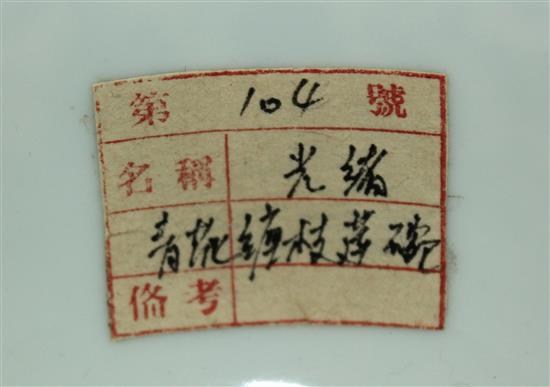 第 104 號
名稱 光緒
青花纏枝蓮碗
備考